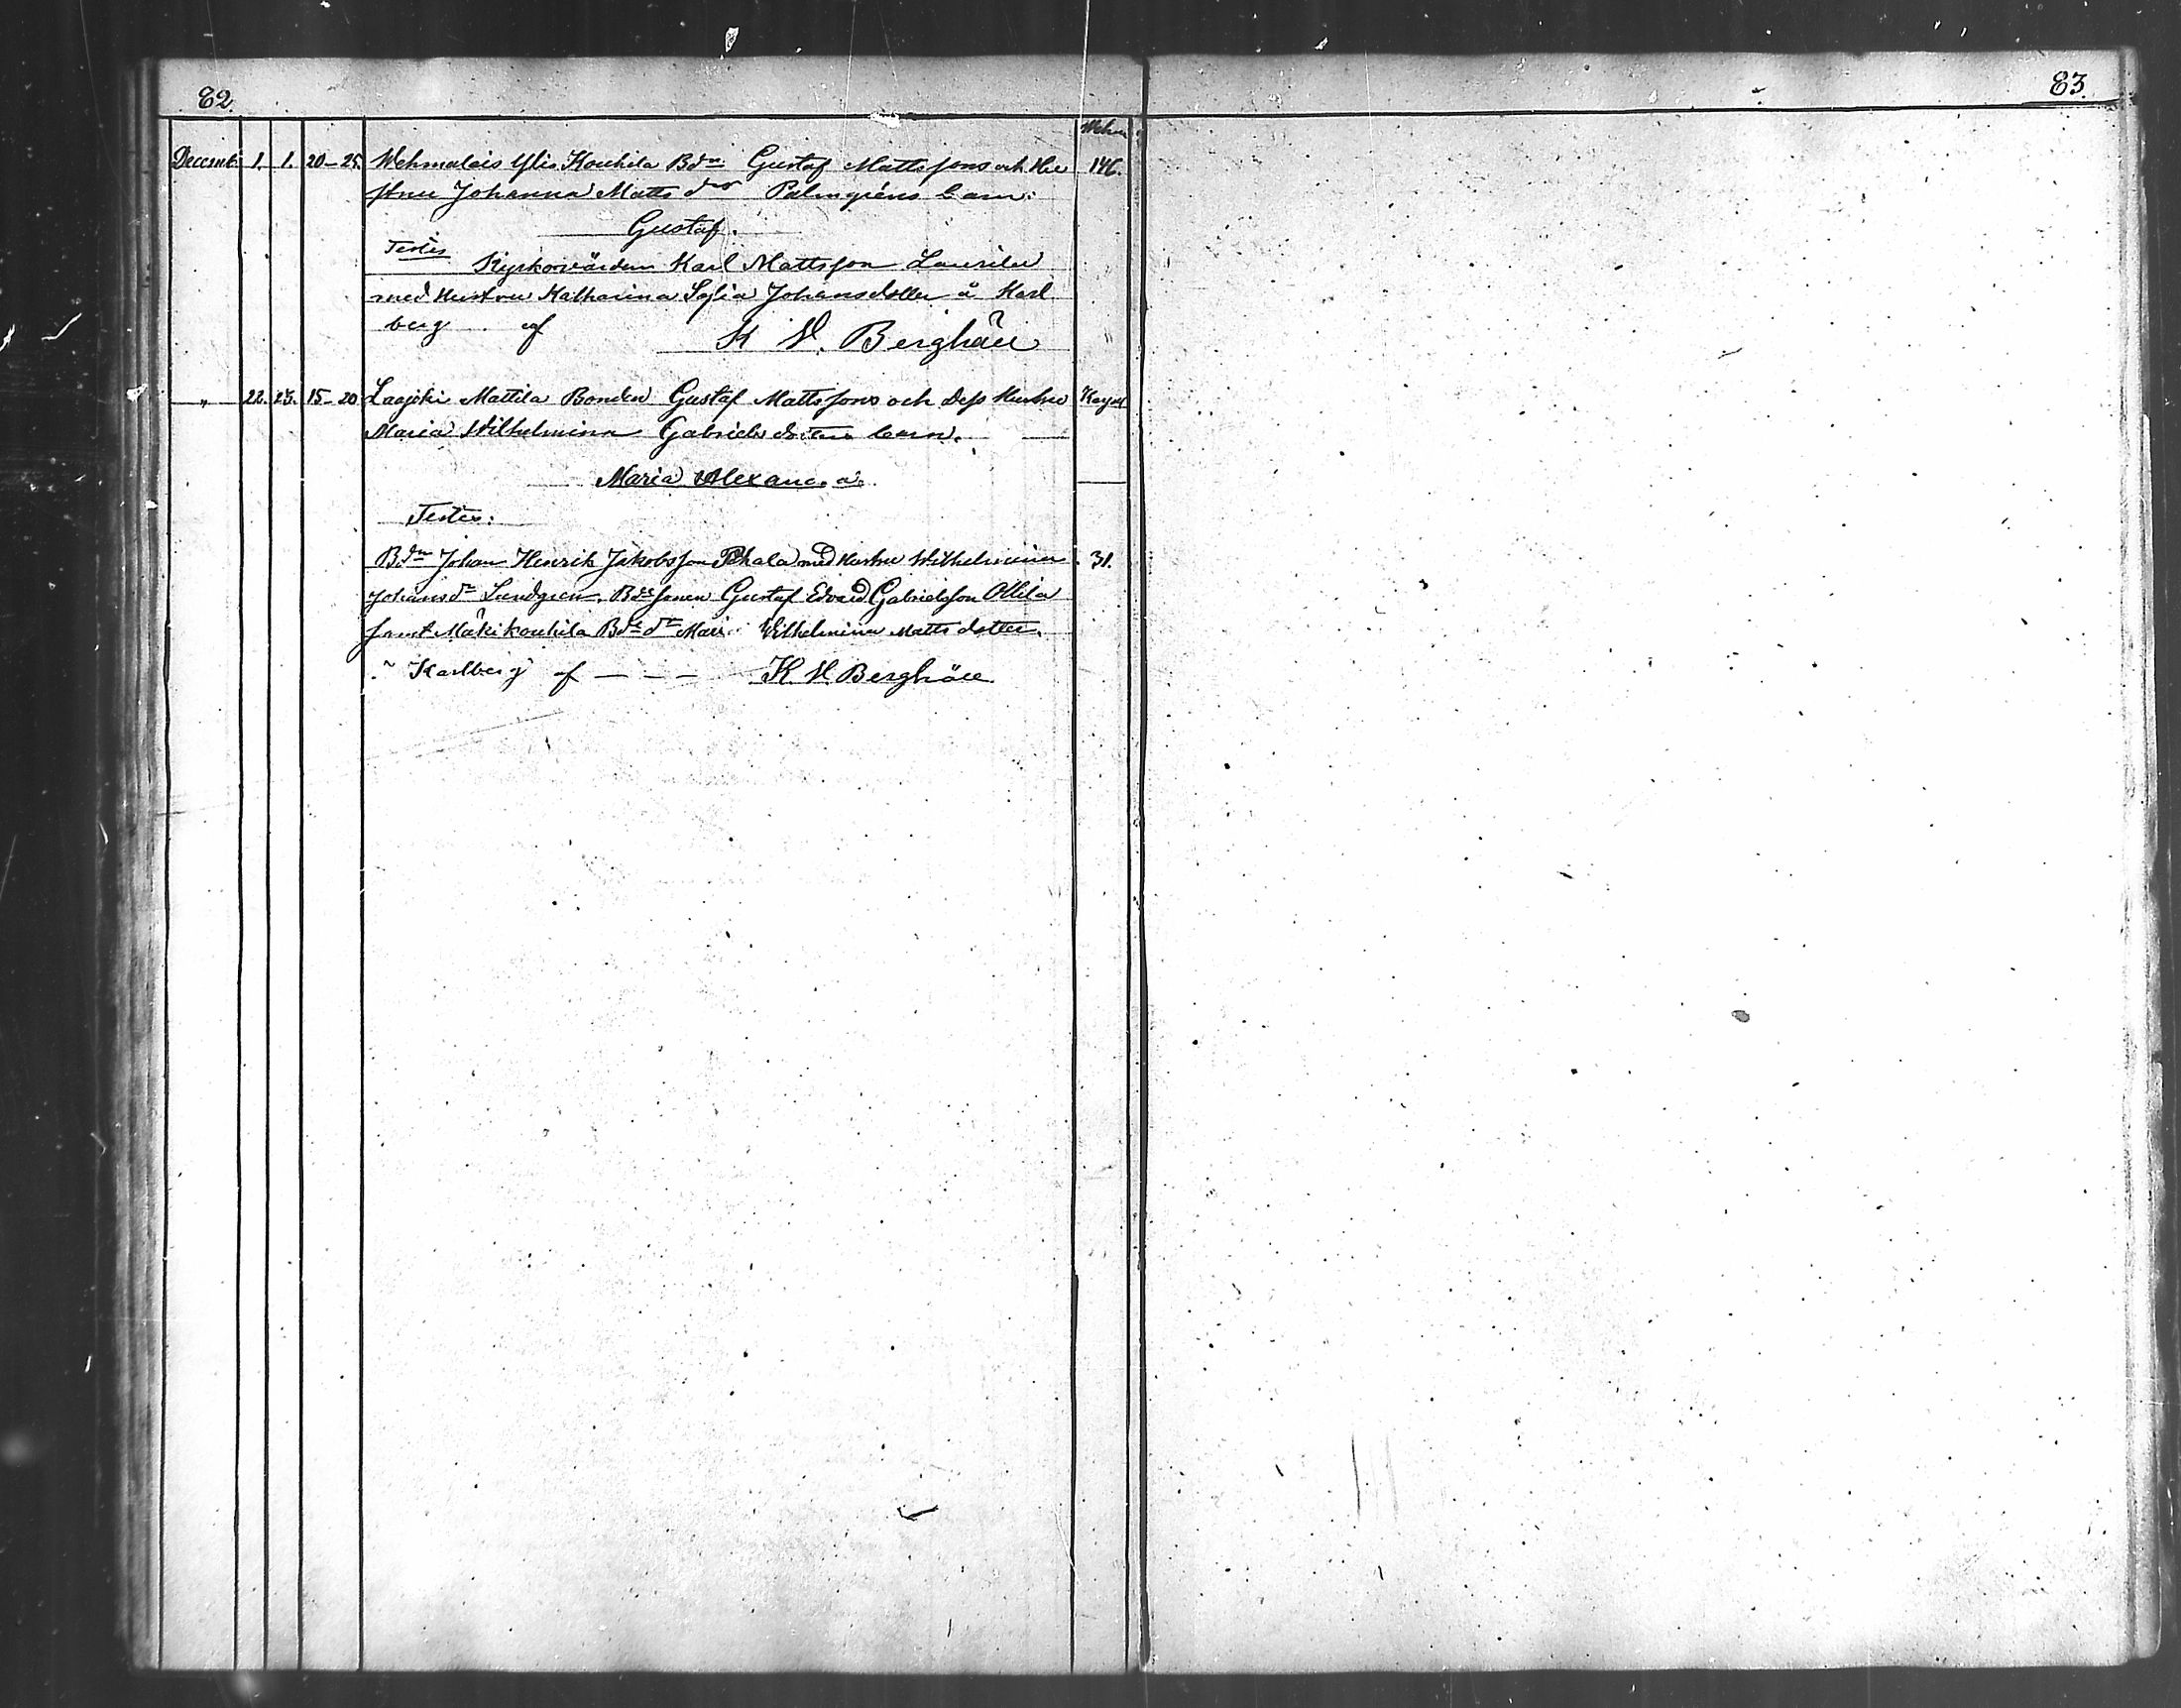 82.
83.
Wehm
Decemb. 1. 1. 20-25. Wehmalais Ylis Kouhila Bdn Gustaf Mattssons och Hu 146.
strus Johanna Matts drs Palmgréns barn:
Gustaf.
Testes
Kyrkovärden Karl Mattsson Laurila
med Hustru Katharina Sofia Johansdotter å Karl
berg af K V. Berghäll
" 22. 25. 15-20 Laajoki Mattila Bonden Gustaf Mattssons och dess Hustru
Maria Wilhelmina Gabriels dotters barn.
Maria Alexand.a.
Testes:
Bdn Johan Henrik Jakobsson med Hustru Wilhelmina 31.
Johans dr Lundgren, Bdesonen Gustaf Edvard Gabrielsson Ollila
samt Mäkikouhila Bde dr Mari. Wilhelmina Matts dotter.
Karlberg af - - - K. V. Berghäll